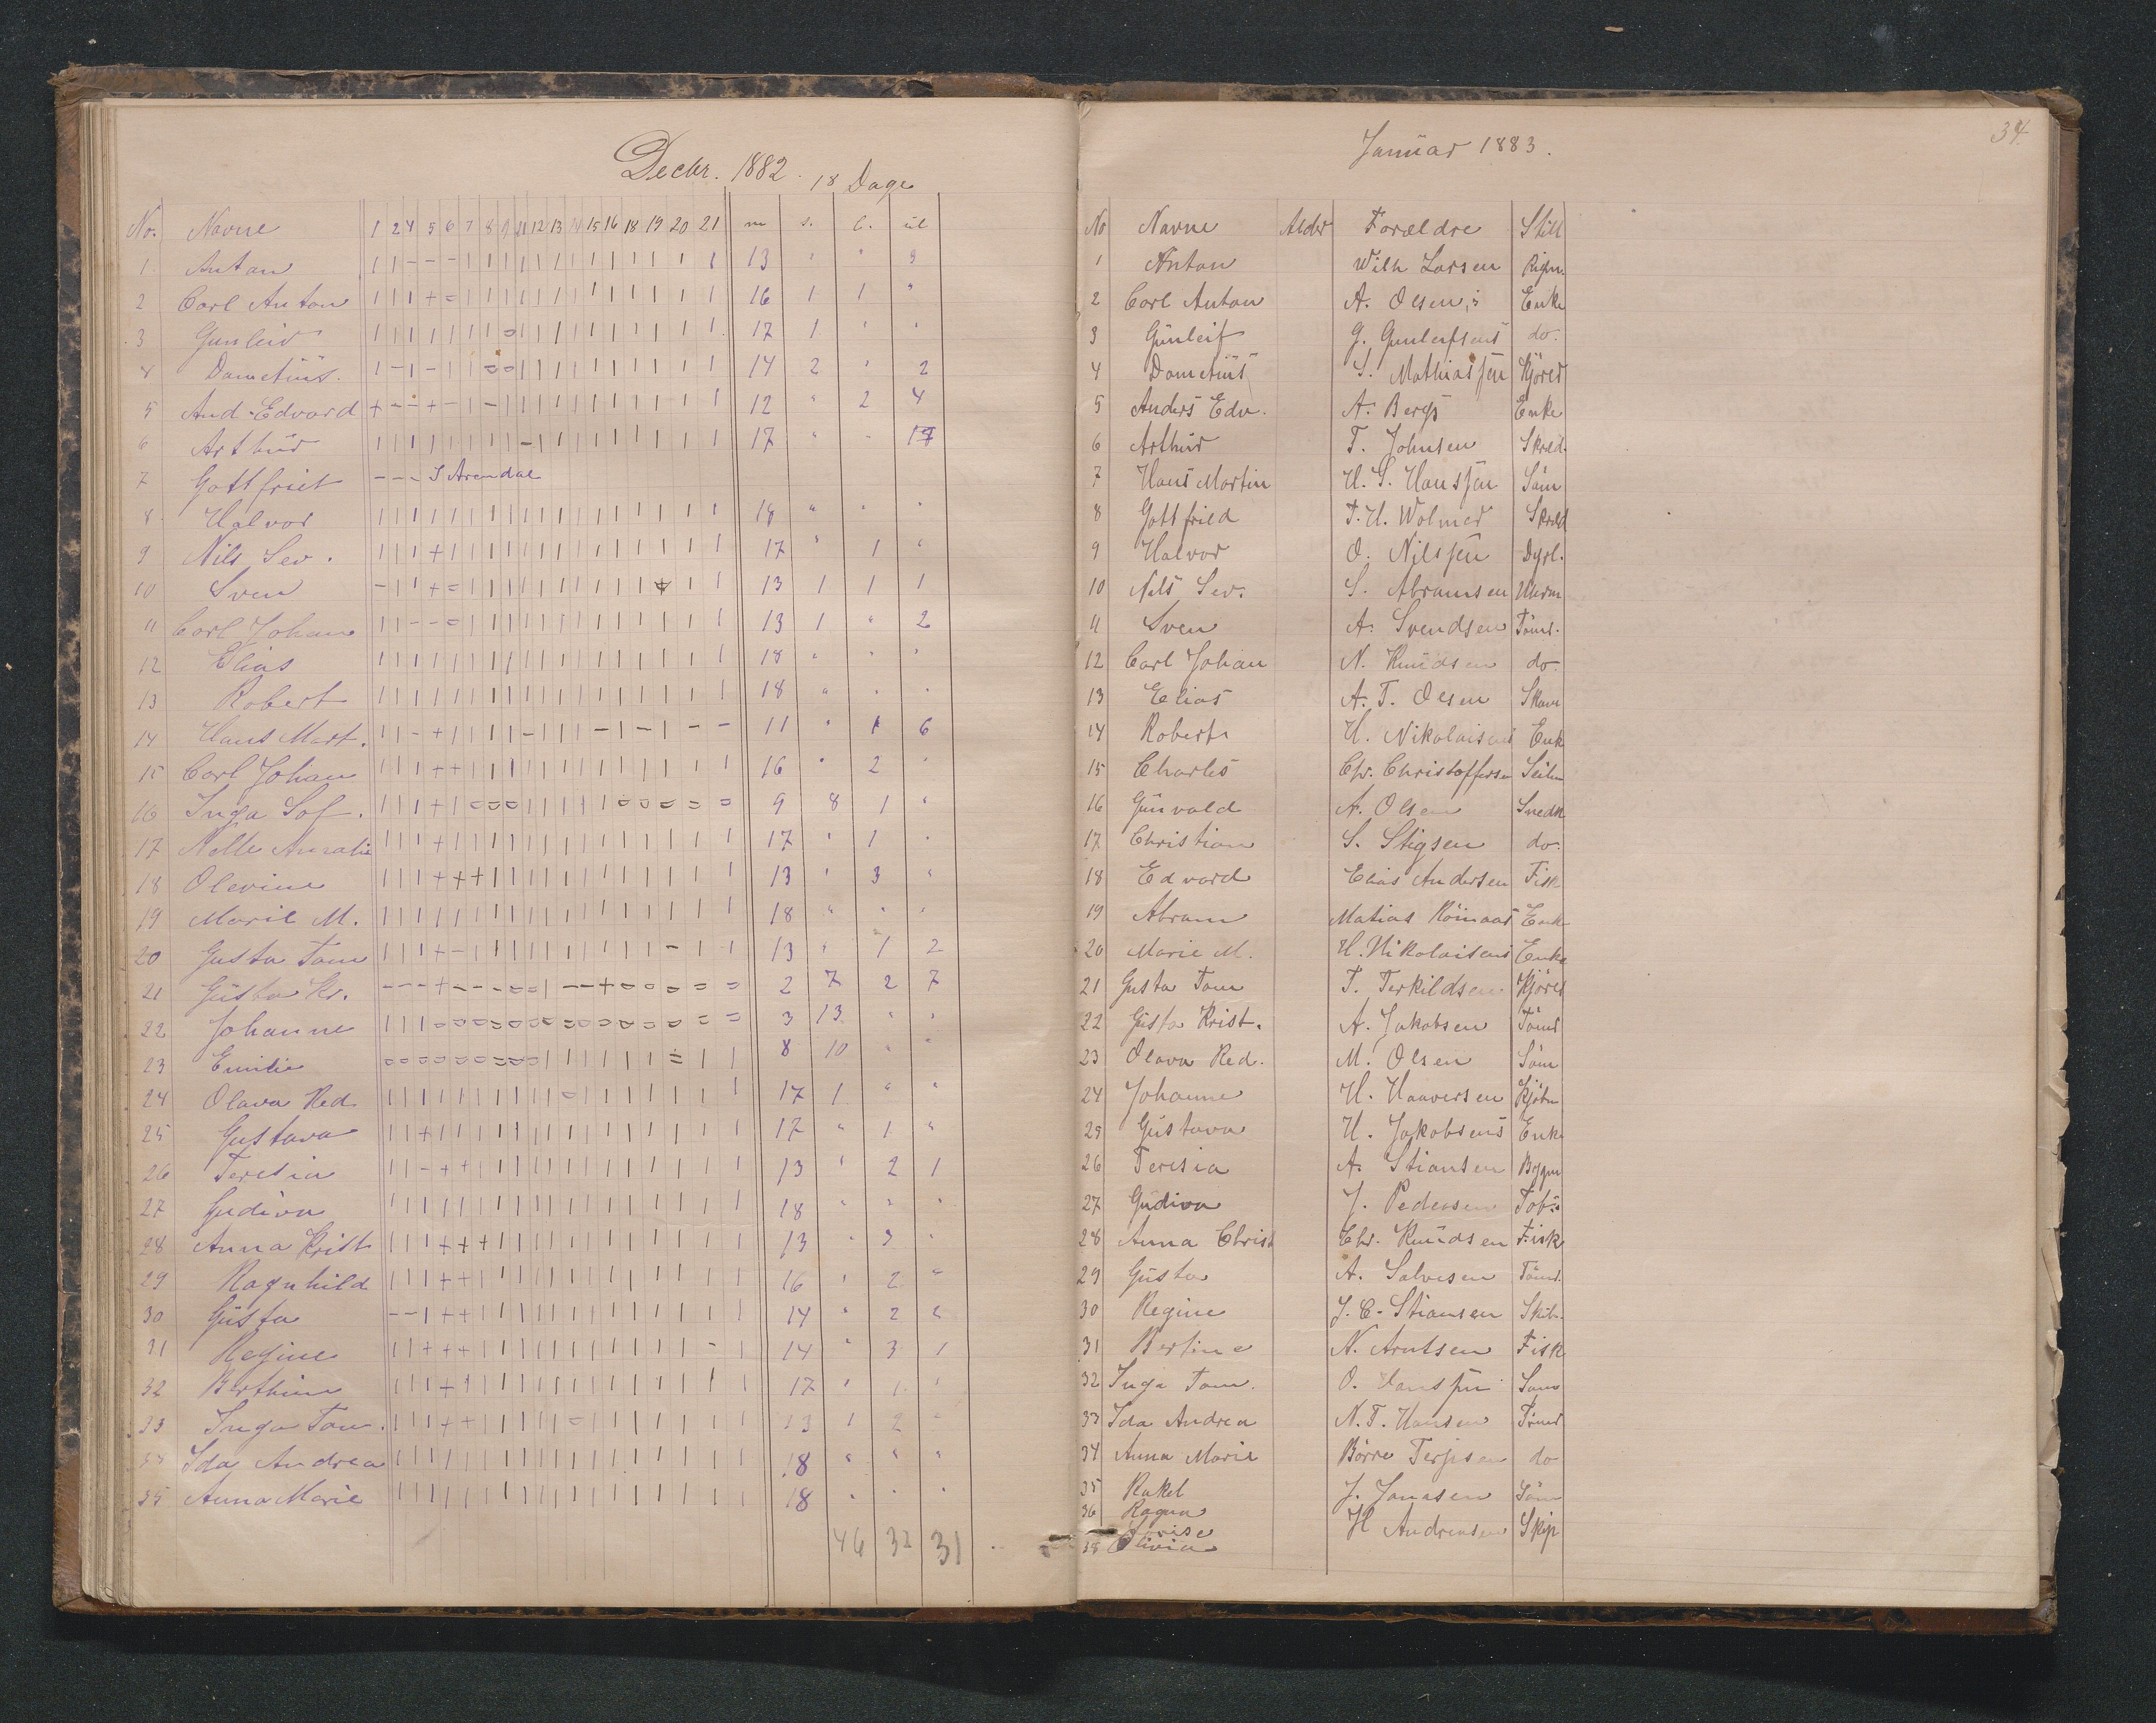 Decbr. 1882. 18 Dage
No. Navne 1 2 4 5 6 7 8 9 11 12 13 14 15 16 18 19 20 21 m s. l. ul
1 Anton | | - - - | | | | | | | | | | | | | 13 " " 5
2 Carl Anton | | | + = | | | | | | | | | | | | | 16 1 1 "
3 Gunleiv | | | | | | | = | | | | | | | | | | 17 1 " "
4 Dometius. | - | - | | = = | | | | | | | | | | 14 2 " 2
5 And. Edvard + - - + - | - | | | | | | | | | | | 12 " 2 4
6 Arthur | | | | | | | | - | | | | | | | | | 17 " "
7 Gottfriet - - - I Arendal
8 Halvor | | | | | | | | | | | | | | | | | | 18 " " "
9 Nils Sev. | | | + | | | | | | | | | | | | | | 17 " 1 "
10 Sven - | | + = | | | | | | | | | | + | | 13 1 1 1
11 Carl Johan | | - - = | | | | | | | | | | | | | 13 1 " 2
12 Elias | | | | | | | | | | | | | | | | | | 18 " " "
13 Robert | | | | | | | | | | | | | | | | | | 18 " " "
14 Hans Mart. | | - + | | | | - | | | - | - | - - 11 " 1 6
15 Carl Johan | | | + + | | | | | | | | | | | | | 16 " 2 "
16 Inga Sof. | | | + | = = = | | | | | = = = = = 9 8 1 "
17 Nelle Amalie | | | + | | | | | | | | | | | | | | 17 " 1 "
18 Olevine | | | + + + | | | | | | | | | | | | 13 " 3 "
19 Marie M. | | | | | | | | | | | | | | | | | | 18 " " "
20 Gusta Tom | | | + - | | | | | | | | | | - | | 13 " 1 2
21 Gusta Kr. - - - + - - - = = | - - + = = = = = 2 7 2 7
22 Johanne | | | = = = = = = = = = = = = = = = 3 13 " "
23 Emilie = = = = = = = = = | | | | | | = | | 8 10 " "
24 Olava Red | | | | | | | | | = | | | | | | | | 17 1 " "
25 Gustava | | + | | | | | | | | | | | | | | | 17 " 1 "
26 Teresia | | - + + | | | | | | | | | | | | | 13 " 2 1
27 Gudiva | | | | | | | | | | | | | | | | | | 18 " " "
28 Anna Krist | | | + + + | | | | | | | | | | | | 13 " 3 "
29 Ragnhild | | | + + | | | | | | | | | | | | | 16 " 2 "
30 Gusta - - | + + | | | | | | | | | | | | | 14 " 2 "
31 Regine | | + + + | | | | | | | | | | | - | 14 " 3 1
32 Berthine | | | + | | | | | | | | | | | | | | 17 " 1 "
33 Inga Tom. | | | + + | | | | = | | | | | | | | 13 1 2 "
Ida Andrea | | | | | | | | | | | | | | | | | | 18 " " "
35 Anna Marie | | | | | | | | | | | | | | | | | | 18 " " "
46 32 31
34.
Januar 1883.
No Navne Alder Forældre Still
1 Anton Wilh Larsen Rigm.
2 Carl Anton A. Olsen,s Enke
3 Gunleif G. Gunleifsens do.
4 Dometius S. Mathiassen Kjörer
5 Anders Edv. A. Bergs Enke
6 Arthur T. Johnsen Skræd.
7 Hans Martin H. S. Hanssen Söm
8 Gottfried T. H. Wolmer Skræd
9 Halvor O. Nilssen Dyrl.
10 Nils Sev. S. Abramsen Uhrm
11 Sven A. Svendsen Tömr.
12 Carl Johan N. Knudsen do.
13 Elias A. T. Olsen Skom
14 Robert H. Nikolaisens Enk
15 Charles Chr. Christoffersen Seilm
16 Gunvald A. Olsen Snedk
17 Christian S. Stigsen do.
18 Edvard Elias Andersen Fisk
19 Abram Matias Röinaas Enk
20 Marie M. H. Nikolaisens Enke
21 Gusta Tom T. Terkildsen Kjörer
22 Gusta Krist. A. Jakobsen Tömr
23 Olava Red. M. Olsen Söm
24 Johanne H. Haaversen Kjöbm
25 Gustava H. Jakobsens Enke
26 Teresia A. Stiansen Bygm
27 Gudiva J. Pedersen Tob.
28 Anna Christ Chr. Knudsen Fisk
29 Gusta A. Salvesen Tömr.
30 Regine J. C. Stiansen Skib.
31 Bertine N. Arntsen Fisk
32 Inga Tom. O. Hanssen Söm
33 Ida Andrea N. T. Hansen Tömr
34 Anna Marie Börre Terjesen do
35 Rakel J. Jonasen Söm
36 Ragna H Andreasen Skip
38 Olivia